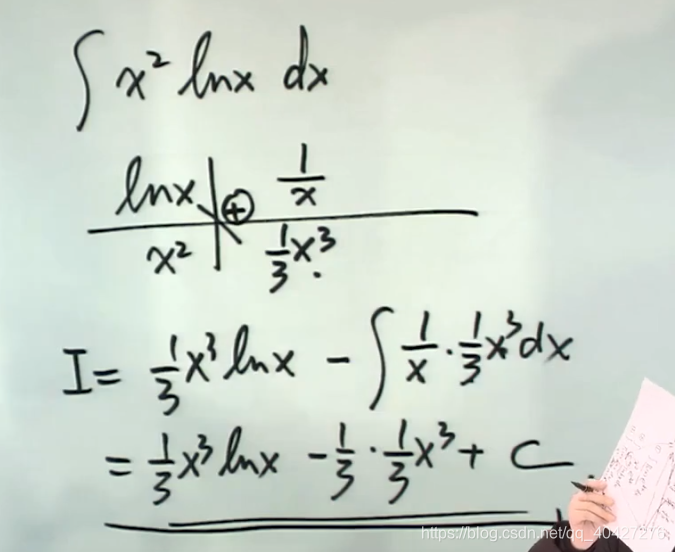 ∫ x² lnx dx
lnx ⊕ 1/x
x² 1/3 x³
I = 1/3 x³ lnx - ∫ 1/x · 1/3 x³ dx
= 1/3 x³ lnx - 1/3 · 1/3 x³ + C
https://blog.csdn.net/qq_40427276